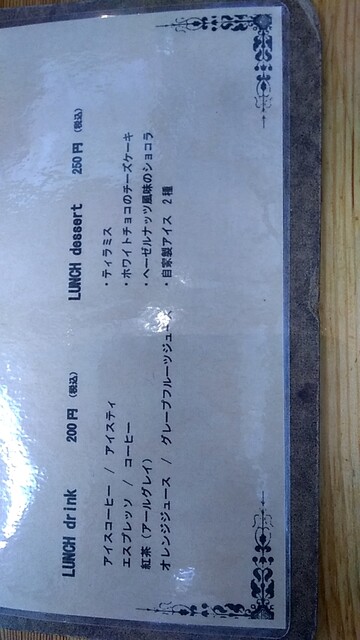 LUNCH drink 200円 (税込)
アイスコーヒー / アイスティ
エスプレッソ / コーヒー
紅茶 (アールグレイ)
オレンジジュース / グレープフルーツジュース
LUNCH dessert 250円 (税込)
・ティラミス
・ホワイトチョコのチーズケーキ
・ヘーゼルナッツ風味のショコラ
・自家製アイス 2種